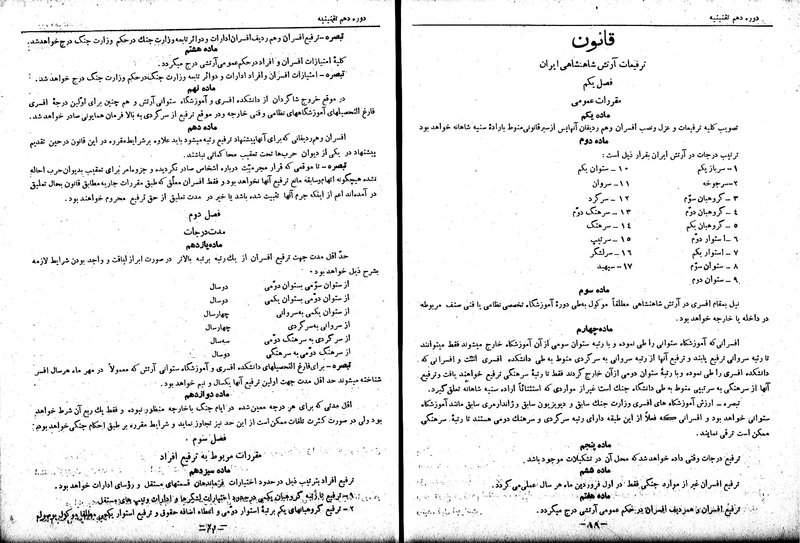 دوره دهم تقنینیه
قانون
ترفیعات آرتش شاهنشاهی ایران
فصل یکم
مقررات عمومی
ماده یکم
تصویب کلیه ترفیعات و عزل ونصب افسران وهم ردیفان آنها پس از سیر قانونی منوط باراده سنیه شاهانه خواهد بود
ماده دوم
ترتیب درجات در آرتش ایران بقرار ذیل است:
۱- سرباز یکم
۲- سرجوخه
۳- گروهبان سوّم
۴- گروهبان دوّم
۵- گروهبان یکم
۶- استوار دوّم
۷- استوار یکم
۸- ستوان سوّم
۹- ستوان دوم
۱۰- ستوان یکم
۱۱- سروان
۱۲- سرگرد
۱۳- سرهنگ دوّم
۱۴- سرهنگ
۱۵- سرتیپ
۱۶- سرلشگر
۱۷- سپهبد
ماده سوم
نیل بمقام افسری در آرتش شاهنشاهی مطلقاً موکول به طی دورهٔ آموزشگاه تخصصی نظامی یا فنی صنف مربوطه
در داخله یا خارجه خواهد بود.
ماده چهارم
افسرانی که آموزشگاه ستوانی را طی نموده و با رتبه ستوان سومی از آن آموزشگاه خارج میشوند فقط میتوانند
تا رتبه سروانی ترفیع یابند و ترفیع آنها از رتبه سروانی به سرگردی منوط به طی دانشکده افسری است و افسرانی که
دانشکده افسری را طی نموده وبا رتبهٔ ستوان دومی از آن خارج گردند فقط تا رتبهٔ سرهنگی ترفیع خواهند یافت وترفیع
آنها از سرهنگی به سرتیپی منوط به طی دانشگاه جنگ است غیر از مواردی که استثنائاً اراده سنیه شاهانه تعلق گیرد.
تبصره - ارزش آموزشگاه های افسری وزارت جنگ سابق و دیویزیون سابق وژاندارمری سابق مانند آموزشگاه
ستوانی خواهد بود و افسرانی که فعلاً از این طبقه دارای رتبه سرگردی و سرهنگ دومی هستند تا رتبهٔ سرهنگی
ممکن است ترقی نمایند.
ماده پنجم
ترفیع درجات وقتی داده خواهد شد که محل آن در تشکیلات موجود باشد.
ماده ششم
ترفیع افسران غیر از موارد جنگی فقط در اول فروردین ماه هر سال عملی میگردد.
ماده هفتم
ترفیع افسران و همردیف افسران در حکم عمومی آرتش درج میگردد.
-۸۸-
دوره دهم تقنینیه
تبصره - ترفیع افسران وهم ردیف افسران ادارات و دوائر تابعه وزارت جنگ در حکم وزارت جنگ درج خواهد شد.
ماده هشتم
کلیهٔ امتیازات افسران و افراد در حکم عمومی آرتشی درج میگردد.
تبصره - امتیازات افسران وافراد ادارات و دوائر تابعه وزارت جنگ در حکم وزارت جنگ درج خواهد شد.
ماده نهم
در موقع خروج شاگردان از دانشکده افسری و آموزشگاه ستوانی آرتش و هم چنین برای اولین درجهٔ افسری
فارغ التحصیلهای آموزشگاههای نظامی وفنی خارجه ودر موقع ترفیع از سرگردی به بالا فرمان همایونی صادر خواهد شد.
ماده دهم
افسران وهم ردیفانی که برای آنها پیشنهاد ترفیع رتبه میشود باید علاوه بر شرایط مقرره در این قانون در حین تقدیم
پیشنهاد در یکی از دیوان حرب‌ها تحت تعقیب محاکماتی نباشند.
تبصره - تا موقعی که قرار مجرمیّت درباره اشخاص صادر نگردیده و جزو امر برای تعقیب بدیوان حرب احاله
نشده هیچگونه اتهام وسابقه مانع ترفیع آنها نخواهد بود و فقط افسران معلّق که طبق مقررات جاریه مطابق قانون بحال تعلیق
در آمده‌اند اعم از اینکه جرم آنها تثبیت شده باشد یا خیر در مدت تعلیق از حق ترفیع محروم خواهند بود.
فصل دوم
مدت درجات
ماده یازدهم
حدّ اقل مدت جهت ترفیع افسران از یك رتبه برتبه بالاتر در صورت ابراز لیاقت و واجد بودن شرایط لازمه
بشرح ذیل خواهد بود.
از ستوان سوّمی بستوان دوّمی دوسال
از ستوان دوّمی بستوان یکمی دوسال
از ستوان یکمی به سروانی چهارسال
از سروانی به سرگردی چهارسال
از سرگردی به سرهنگ دوّمی سه‌سال
از سرهنگ دوّمی به سرهنگی دوسال
تبصره - برای فارغ التحصیلهای دانشکده افسری و آموزشگاه ستوانی آرتش که معمولاً در مهر ماه هر سال افسر
شناخته میشوند حد اقل مدت جهت اولین ترفیع آنها یکسال و نیم خواهد بود.
ماده دوازدهم
اقل مدتی که برای هر درجه معین شده در ایام جنگ باخارجه منظور نبوده و فقط یك ربع آن شرط خواهد
بود ولی در صورت کثرت تلفات ممکن است از این حد نیز تجاوز نماید و شرایط مقرره بر طبق احکام جنگی خواهد بود.
فصل سوم
مقررات مربوط به ترفیع افراد
ماده سیزدهم
ترفیع افراد بترتیب ذیل در حدود اختیارات فرماندهان قسمتهای مستقل و رؤسای ادارات خواهد بود.
۱- ترفیع تا رتبه گروهبان یکمی در حدود اختیارات لشگرها و ادارات وتیپ های مستقل
۲- ترفیع گروهبانهای یکم برتبهٔ استوار دوّمی و اعطاء اضافه حقوق و ترفیع استوار یکمی مطلقاً موکول بوصول